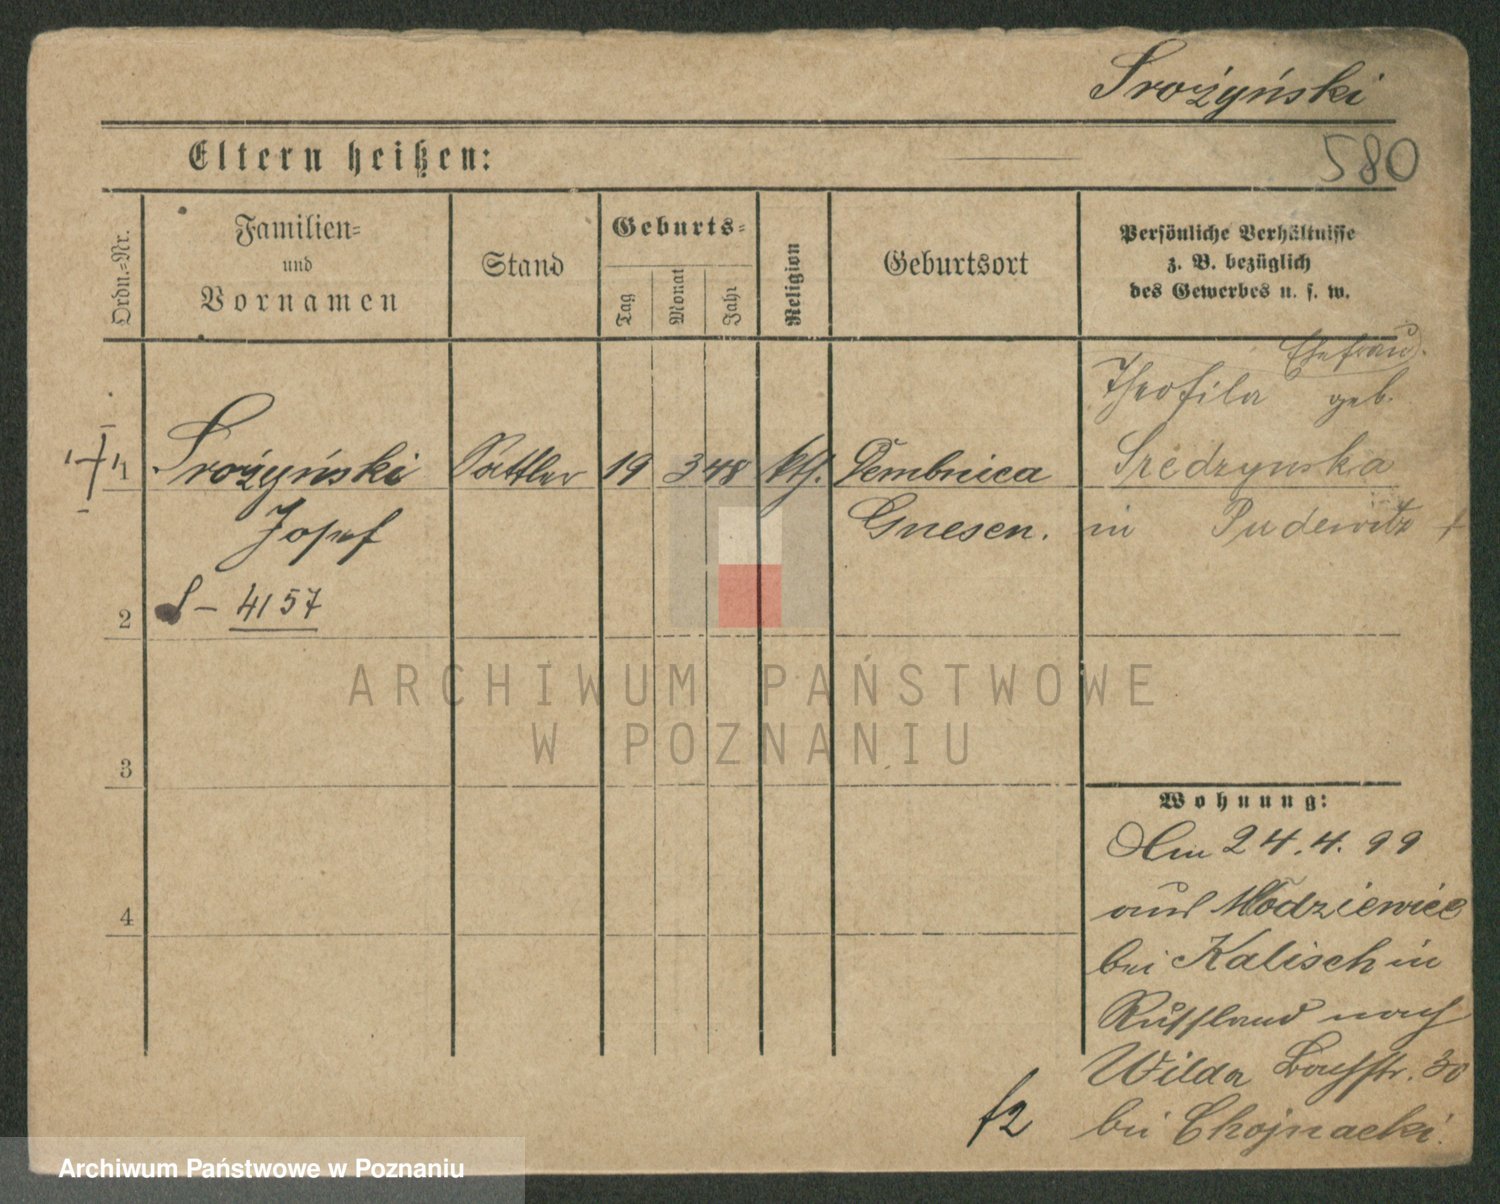 Srożyński
580
Eltern heißen:
Ordn.=Nr.
Familien=
und
Vornamen
Stand
Geburts=
Tag
Monat
Jahr
Religion
Geburtsort
Persönliche Verhältnisse
z. B. bezüglich
des Gewerbes u. s. w.
Ehefrau
Theofila geb.
1 Srożyński Sattler 19 3 48 kth. Dembnica Szedzynska
Josef Gnesen. in Pudewitz +
S - 4157
2
3
4
Wohnung:
Am 24.4.99
aus Modziewice
bei Kalisch in
Russland nach
Wilda Bachstr. 30
bei Chojnacki.
f2
ARCHIWUM PAŃSTWOWE
W POZNANIU
Archiwum Państwowe w Poznaniu